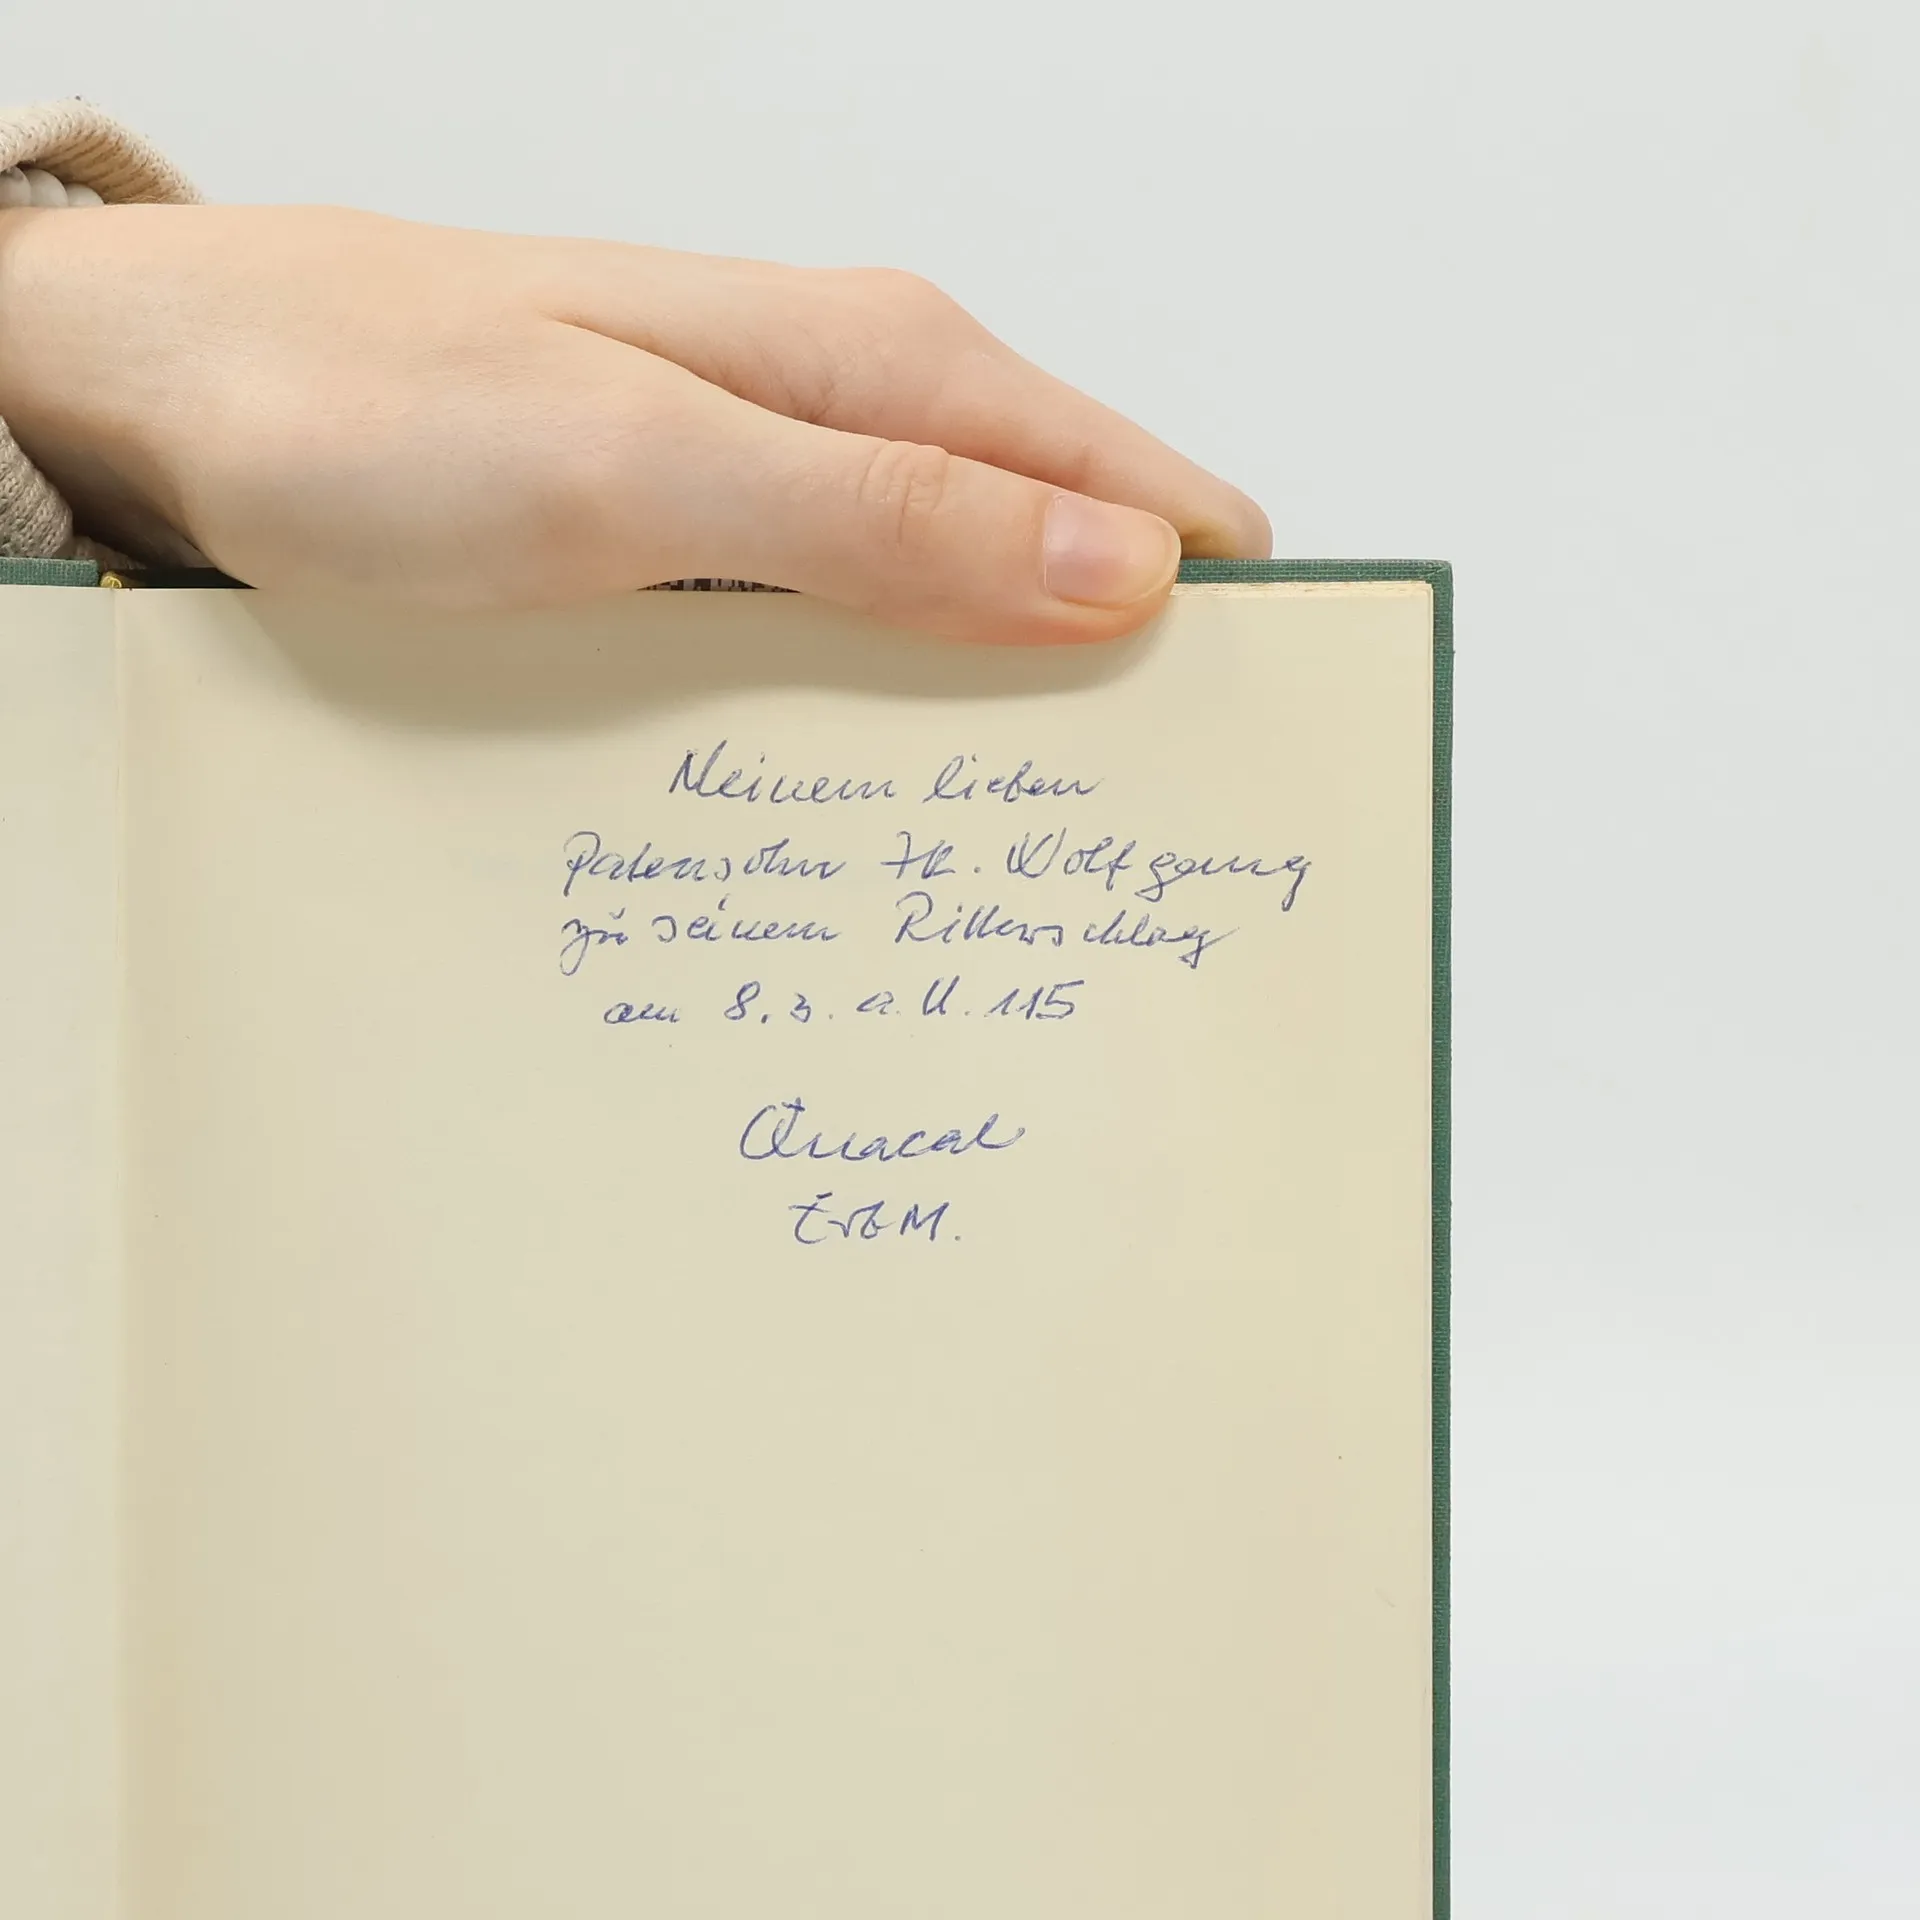 Meinem lieben
Patensohn Jk. Wolfgang
zu seinem Ritterschlag
am 8. 3. a. U. 115
ErbM.